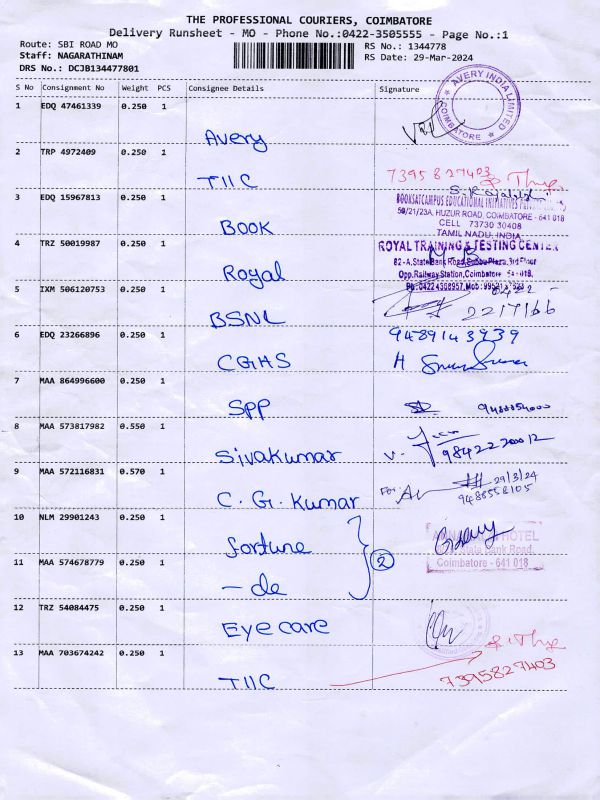 THE PROFESSIONAL COURIERS, COIMBATORE
Delivery Runsheet - MO - Phone No.:0422-3505555 - Page No.:1
Route: SBI ROAD MO
RS No.: 1344778
Staff: NAGARATHINAM
RS Date: 29-Mar-2024
DRS No.: DCJB134477801
S No Consignment No Weight PCS Consignee Details Signature
1 EDQ 47461339 0.250 1 Avery
AVERY INDIA LIMITED
COIMBATORE
2 TRP 4972409 0.250 1 TIIC 7395827403
3 EDQ 15967813 0.250 1 BOOK
BOOKSATCAMPUS EDUCATIONAL INITIATIVES
50/21/23A, HUZUR ROAD, COIMBATORE - 641 018
CELL 73730 30408
TAMIL NADU, INDIA
4 TRZ 50019987 0.250 1 Royal
ROYAL TRAINING & TESTING CENTER
82-A, State Bank Road, Plaza, 3rd Floor
Opp. Railway Station, Coimbatore
5 IXM 506120753 0.250 1 BSNL
0422 -
2217166
6 EDQ 23266896 0.250 1 CGHS
9489143939
7 MAA 864996600 0.250 1 SPP
8 MAA 573817982 0.550 1 Sivakumar
9 MAA 572116831 0.570 1 C.G. Kumar
29/3/24
10 NLM 29901243 0.250 1 fortune
HOTEL
State Bank Road,
Coimbatore - 641 018
11 MAA 574678779 0.250 1 - de 2
12 TRZ 54084475 0.250 1 Eye care
13 MAA 703674242 0.250 1 TIIC
7395827403